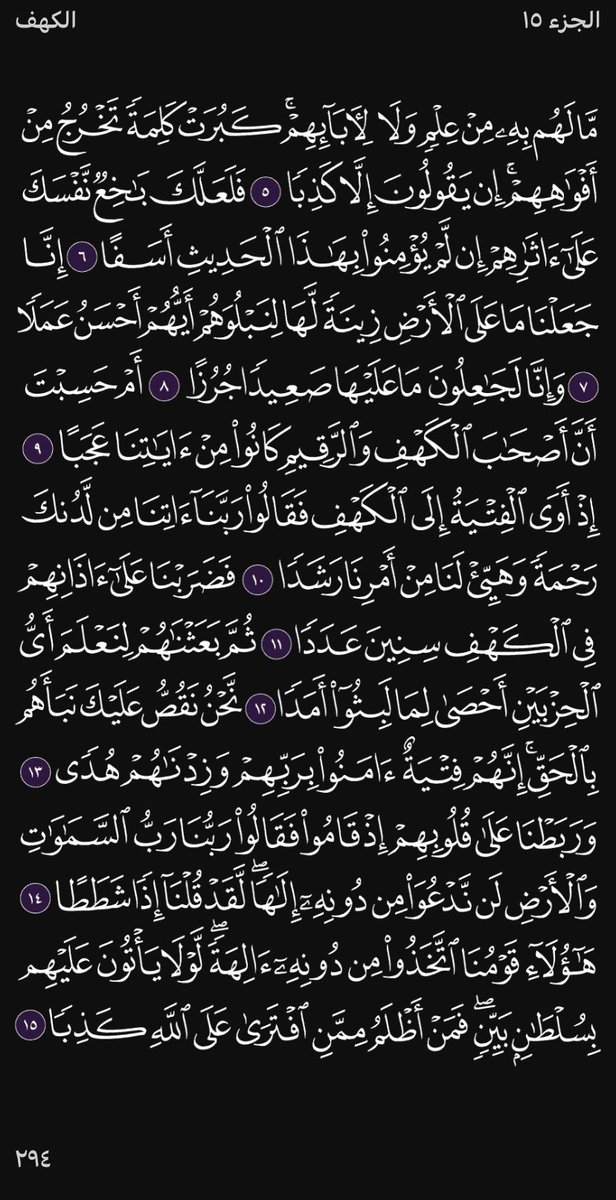 الجزء ١٥
الكهف
مَّا لَهُم بِهِۦ مِنْ عِلْمٍ وَلَا لِأٓبَآئِهِمْ ۚ كَبُرَتْ كَلِمَةً تَخْرُجُ مِنْ
أَفْوَٰهِهِمْ ۚ إِن يَقُولُونَ إِلَّا كَذِبًا ٥ فَلَعَلَّكَ بَٰخِعٌ نَّفْسَكَ
عَلَىٰٓ ءَاثَٰرِهِمْ إِن لَّمْ يُؤْمِنُوا۟ بِهَٰذَا ٱلْحَدِيثِ أَسَفًا ٦ إِنَّا
جَعَلْنَا مَا عَلَى ٱلْأَرْضِ زِينَةً لَّهَا لِنَبْلُوَهُمْ أَيُّهُمْ أَحْسَنُ عَمَلًا
٧ وَإِنَّا لَجَٰعِلُونَ مَا عَلَيْهَا صَعِيدًا جُرُزًا ٨ أَمْ حَسِبْتَ
أَنَّ أَصْحَٰبَ ٱلْكَهْفِ وَٱلرَّقِيمِ كَانُوا۟ مِنْ ءَايَٰتِنَا عَجَبًا ٩
إِذْ أَوَى ٱلْفِتْيَةُ إِلَى ٱلْكَهْفِ فَقَالُوا۟ رَبَّنَآ ءَاتِنَا مِن لَّدُنكَ
رَحْمَةً وَهَيِّئْ لَنَا مِنْ أَمْرِنَا رَشَدًا ١٠ فَضَرَبْنَا عَلَىٰٓ ءَاذَانِهِمْ
فِى ٱلْكَهْفِ سِنِينَ عَدَدًا ١١ ثُمَّ بَعَثْنَٰهُمْ لِنَعْلَمَ أَىُّ
ٱلْحِزْبَيْنِ أَحْصَىٰ لِمَا لَبِثُوٓا۟ أَمَدًا ١٢ نَّحْنُ نَقُصُّ عَلَيْكَ نَبَأَهُم
بِٱلْحَقِّ ۚ إِنَّهُمْ فِتْيَةٌ ءَامَنُوا۟ بِرَبِّهِمْ وَزِدْنَٰهُمْ هُدًى ١٣
وَرَبَطْنَا عَلَىٰ قُلُوبِهِمْ إِذْ قَامُوا۟ فَقَالُوا۟ رَبُّنَا رَبُّ ٱلسَّمَٰوَٰتِ
وَٱلْأَرْضِ لَن نَّدْعُوَا۟ مِن دُونِهِۦٓ إِلَٰهًا ۖ لَّقَدْ قُلْنَآ إِذًا شَطَطًا ١٤
هَٰٓؤُلَآءِ قَوْمُنَا ٱتَّخَذُوا۟ مِن دُونِهِۦٓ ءَالِهَةً ۖ لَّوْلَا يَأْتُونَ عَلَيْهِم
بِسُلْطَٰنٍۭ بَيِّنٍ ۖ فَمَنْ أَظْلَمُ مِمَّنِ ٱفْتَرَىٰ عَلَى ٱللَّهِ كَذِبًا ١٥
٢٩٤